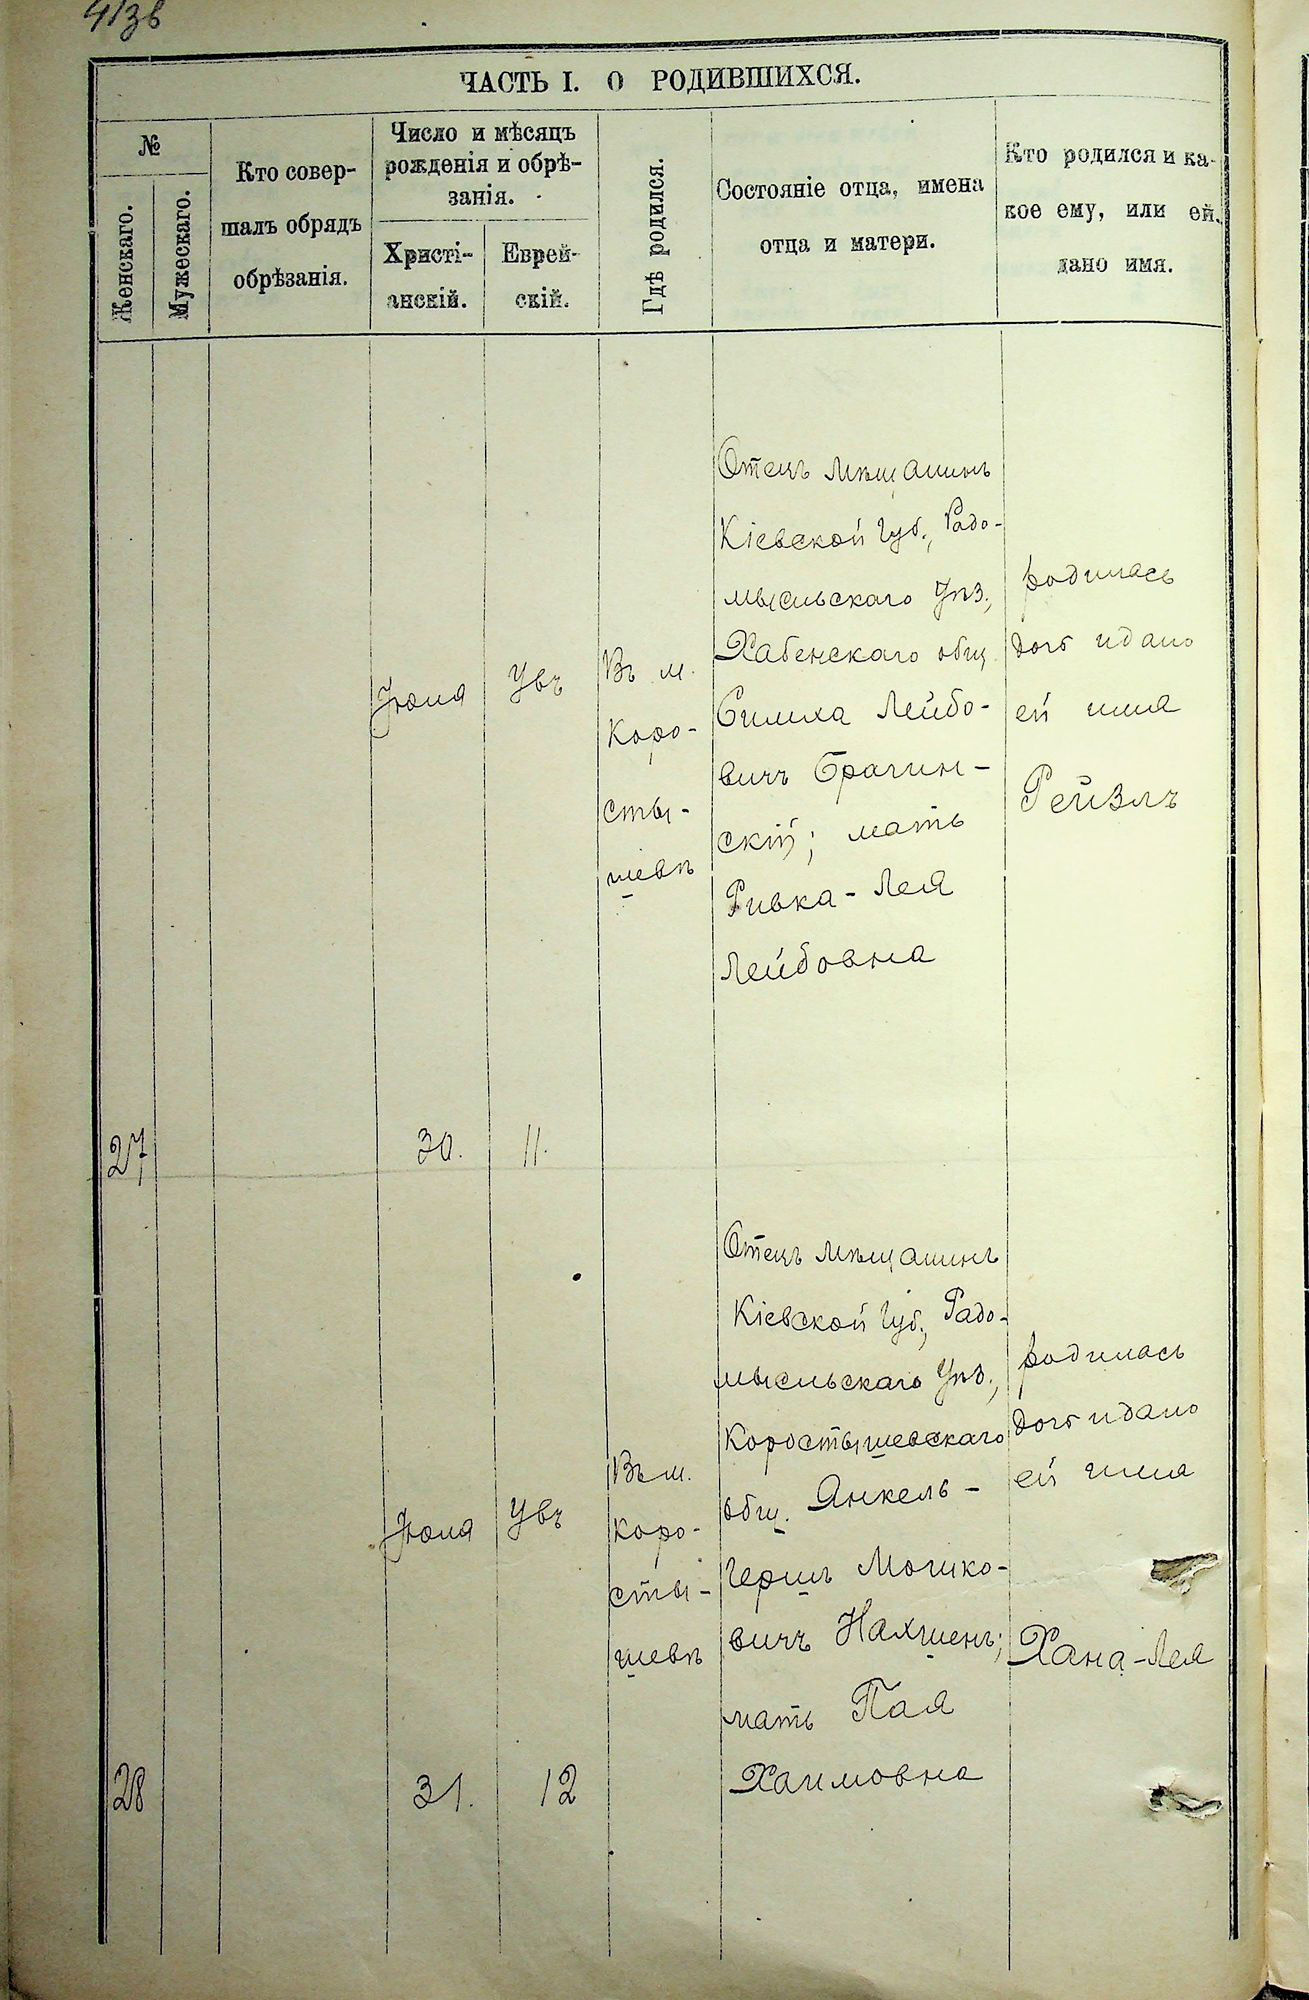 ЧАСТЬ I. О РОДИВШИХСЯ.
№
Женскаго.
Мужескаго.
Кто совер-
шалъ обрядъ
обрѣзанія.
Число и мѣсяцъ
рожденія и обрѣ-
занія.
Христі-
анскій.
Еврей-
скій.
Гдѣ родился.
Состояніе отца, имена
отца и матери.
Кто родился и ка-
кое ему, или ей,
дано имя.
27
Іюля
30.
Увъ
11.
Въ м.
Коро-
сты-
шевѣ
Отецъ мѣщанинъ
Кіевской Губ., Радо-
мысльскаго Уѣз.,
Хабенскаго общ.
Симха Лейбо-
вичъ Брагин-
скій; мать
Ривка-Лея
Лейбовна
родилась
дочь и дано
ей имя
Рейзлъ
28
Іюля
31.
Увъ
12
Въ м.
Коро-
сты-
шевѣ
Отецъ мѣщанинъ
Кіевской Губ., Радо-
мысльскаго Уѣз.,
Коростышевскаго
общ. Янкель-
Гершъ Мошко-
вичъ Нахшенъ;
мать Пая
Хаимовна
родилась
дочь и дано
ей имя
Хана-Лея